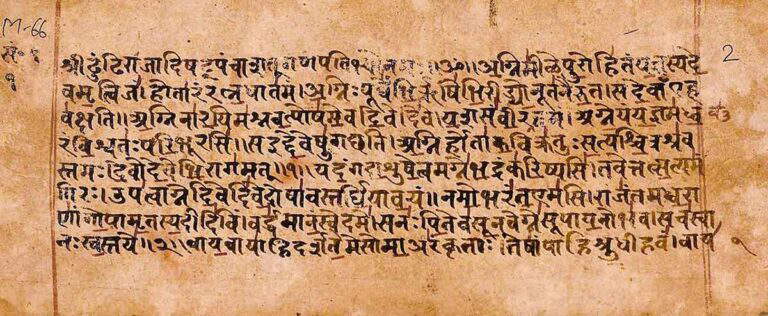 M-66
सं॰ १
१
2
श्रीढुंढिराजादिषट्पंचाशद्गणपतिभ्यो नमः॥ॐ॥अग्निमीळे पुरोहितं यज्ञस्य दे
वमृत्विजं। होतारं रत्नधातमं। अग्निः पूर्वेभिर्ऋषिभिरीड्यो नूतनैरुत। स देवाँ एह
वक्षति॥ अग्निना रयिमश्नवत्पोषमेव दिवेदिवे। यशसं वीरवत्तमं। अग्ने यं यज्ञमध्व
रं विश्वतः परिभूरसि॥ स इद्देवेषु गच्छति। अग्निर्होता कविक्रतुः सत्यश्चित्रश्रव
स्तमः। देवो देवेभिरागमत्॥१॥ यदंग दाशुषे त्वमग्ने भद्रं करिष्यसि। तवेत्तत्सत्यमं
गिरः। उप त्वाग्ने दिवेदिवे दोषावस्तर्धिया वयं॥ नमो भरंत एमसि। राजंतमध्वरा
णां गोपामृतस्य दीदिविं। वर्द्धमानं स्वे दमे। स नः पितेव सूनवेग्ने सूपायनो भव। सचस्वा
नः स्वस्तये॥२॥ वायवायाहि दर्शतेमे सोमा अरंकृताः। तेषां पाहि श्रुधी हवं। वाय